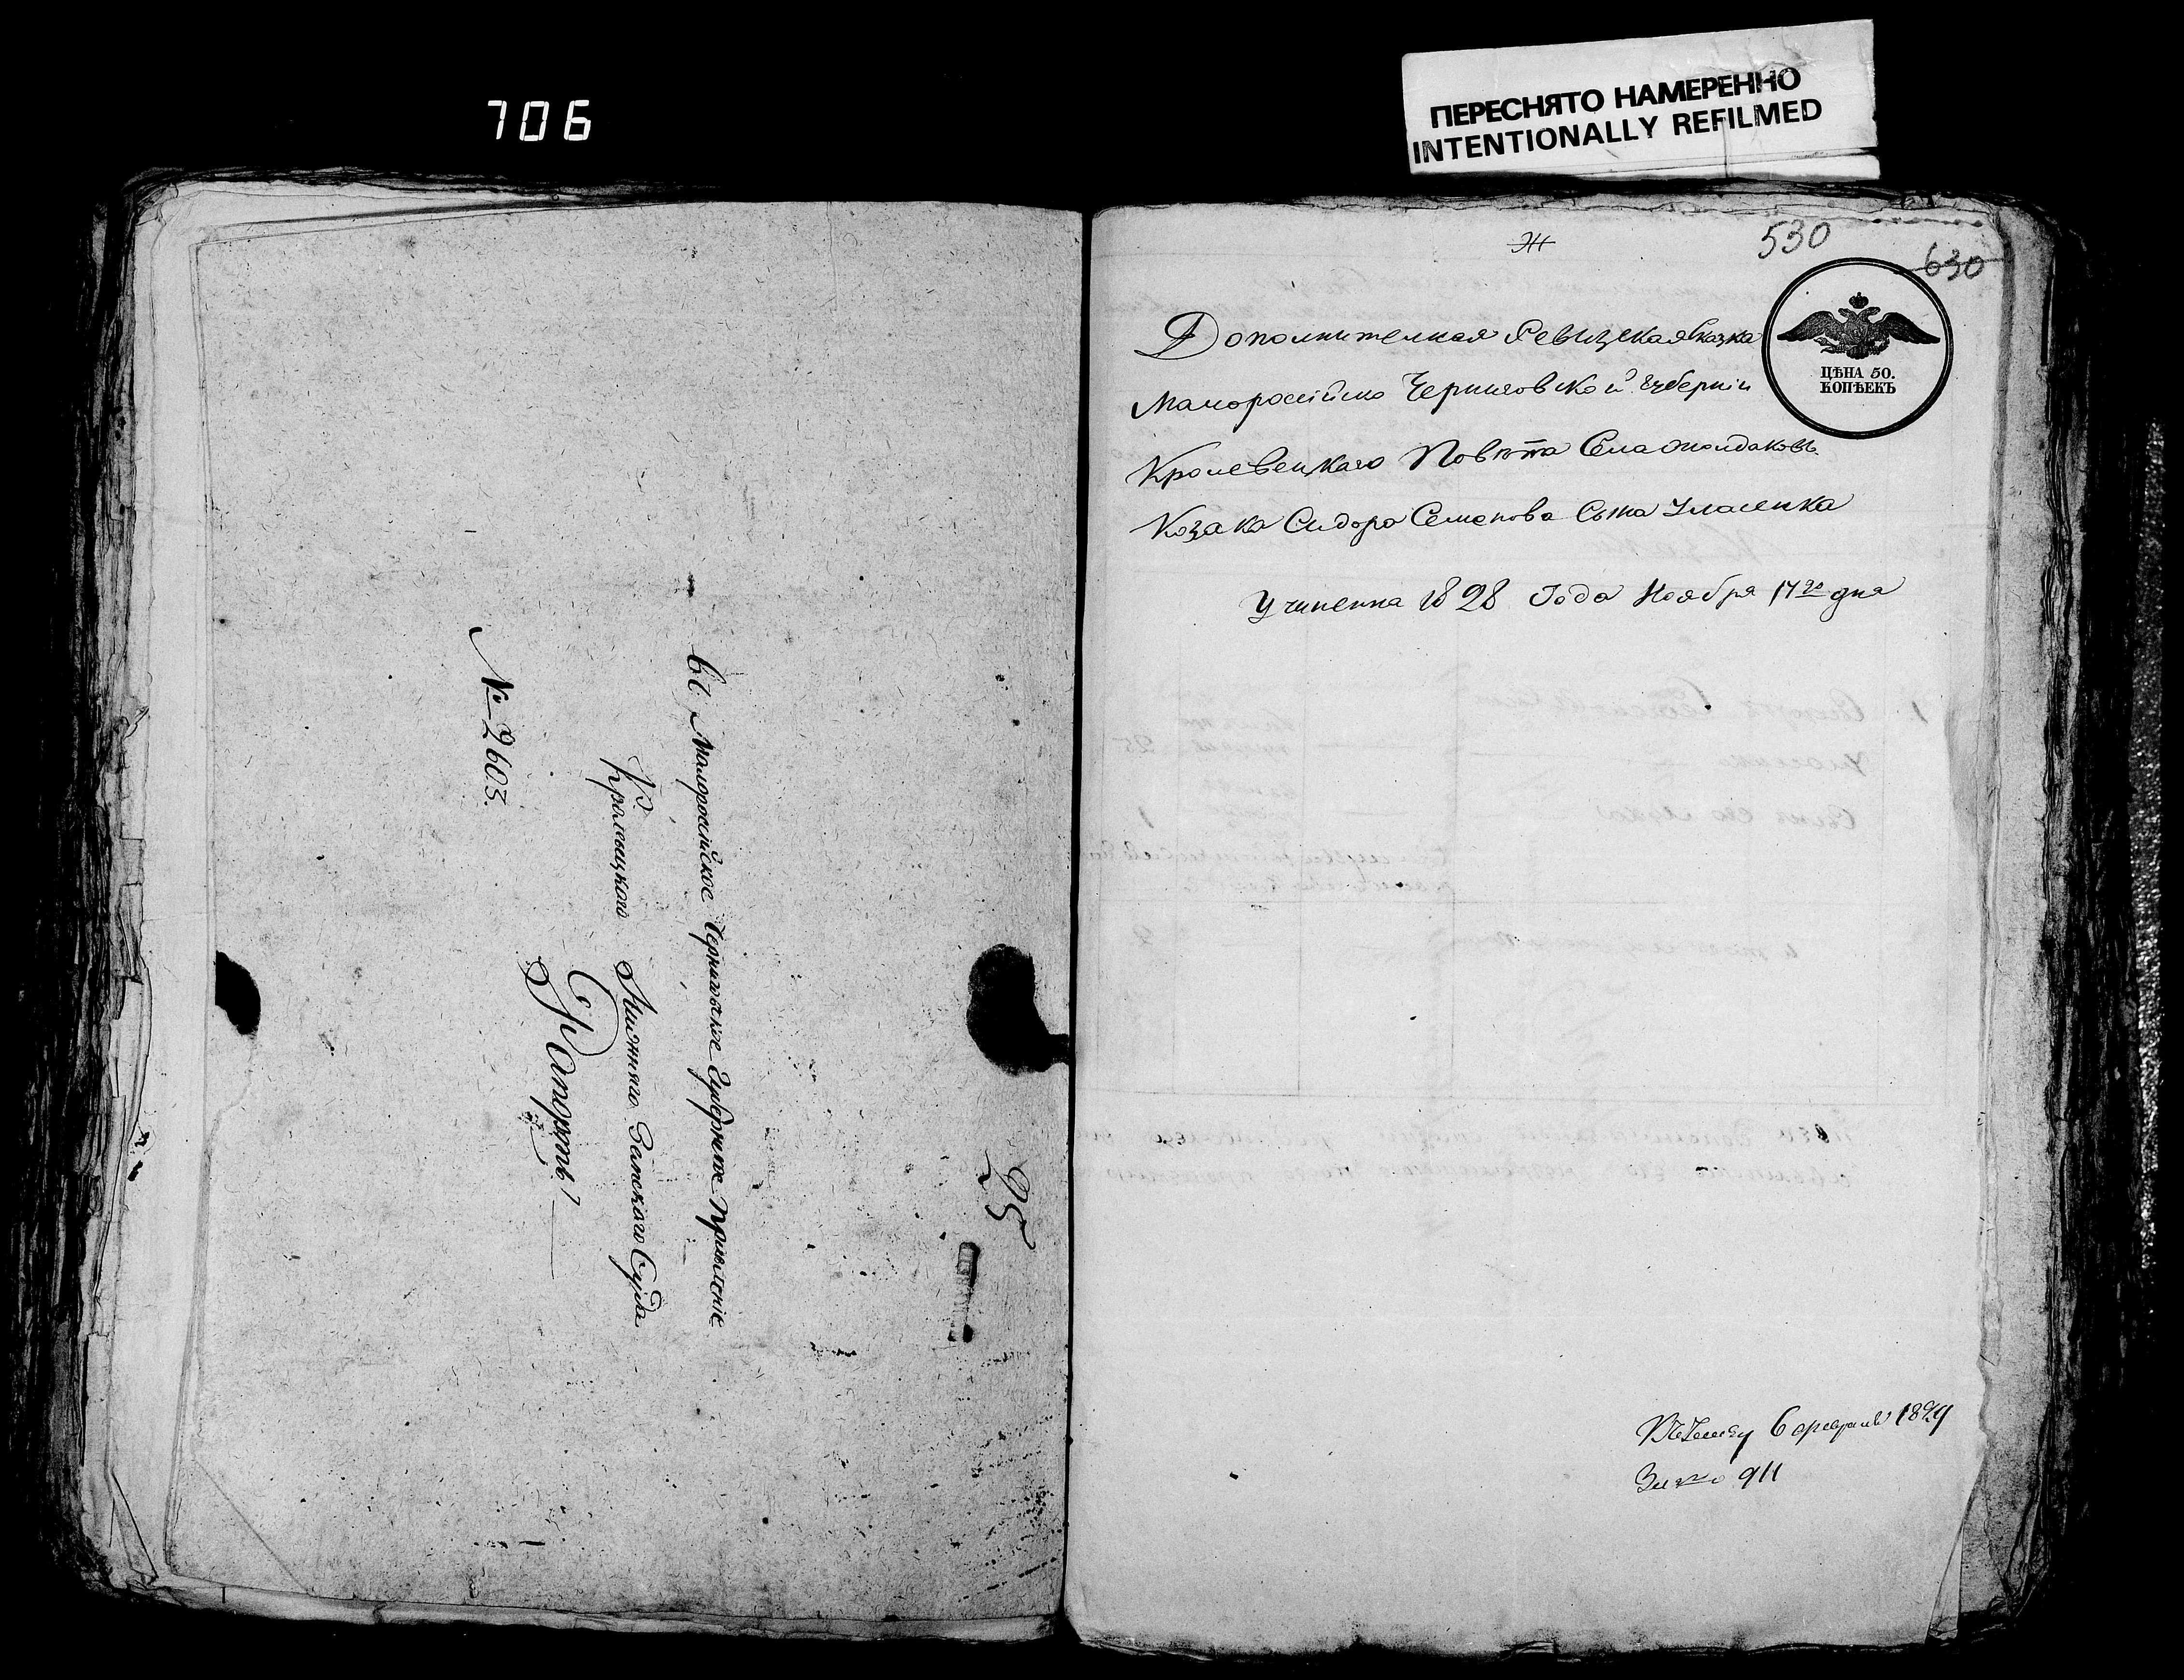 706
ПЕРЕСНЯТО НАМЕРЕННО
INTENTIONALLY REFILMED
Въ Малоросійское Черниговское Губернское Правленіе
Кролевецкого Нижняго Земского Суда
Рапортъ
№ 2603.
25
530
630
ЦѢНА 50.
КОПѢЕКЪ
Дополнителная Ревизская Сказка
Малоросійско Черниговской Губерніи
Кролевецкаго Повѣта Села
Козака Сидора Семенова Сына Уласенка
Учиненна 1828 Года Ноября 17го дня
6 февраля 1829
911